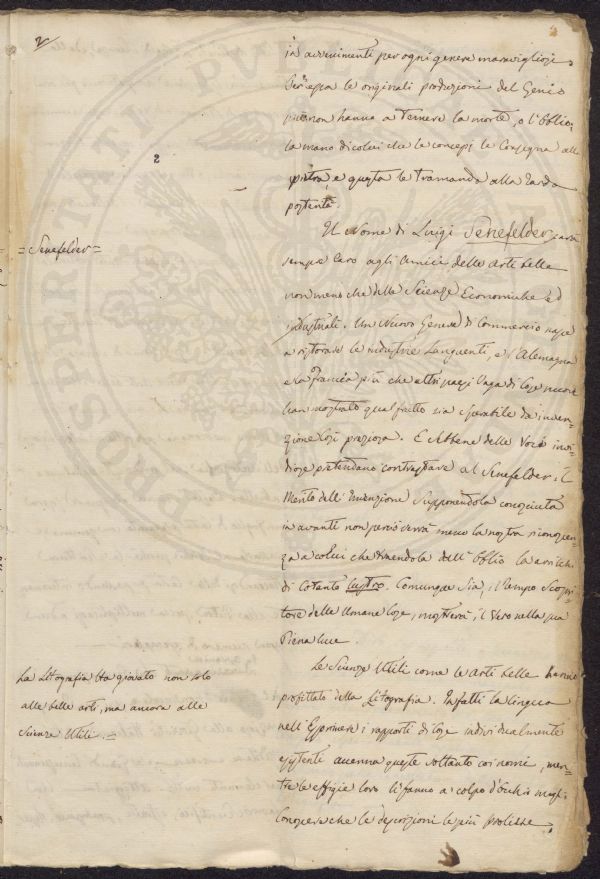 2
2
in avvenimenti per ogni genere maravigliosi.
Per essa le originali produzioni del Genio
più non hanno a temere la morte, o l'obblio,
la mano di colui che le concepì le Consegna alla
pietra, e questa le tramanda alla tarda
posterità.
Il Nome di Luigi Senefelder sarà
sempre Caro agli Amici delle Arti belle
non meno che delle Scienze Economiche ed
industriali. Un Nuovo Genere di Commercio nasce
a ristorare le industrie Languenti, e l'Alemagna
e la Francia più che altri paesi Vaga di Cose nuove
han mostrato qual frutto sia sperabile da inven-
zione Così preziosa. E sebbene delle Voci invi-
diose pretendano contrastare al Senefelder il
Merito dell'Invenzione supponendola conosciuta
in avanti non perciò verrà meno la nostra riconoscen-
za a colui che traendola dall'Oblio la arricchì
di Cotanto lustro. Comunque Sia, il tempo Scopri-
tore delle Umane Cose, mostrerà il Vero nella sua
Piena luce.
Le Scienze Utili come le Arti belle hanno
profittato della Litografia. Infatti la lingua
nell'Esprimere i rapporti di Cose individualmente
esistenti accenna queste soltanto coi nomi, men-
tre le effigie loro li fanno a colpo d'Occhio
Conoscere che le descrizioni le più prolisse,
= Senefelder =
La Litografia Ha giovato non solo
alle belle arti, ma ancora alle
Scienze Utili. =
PVBLICAE
PROSPERITATI